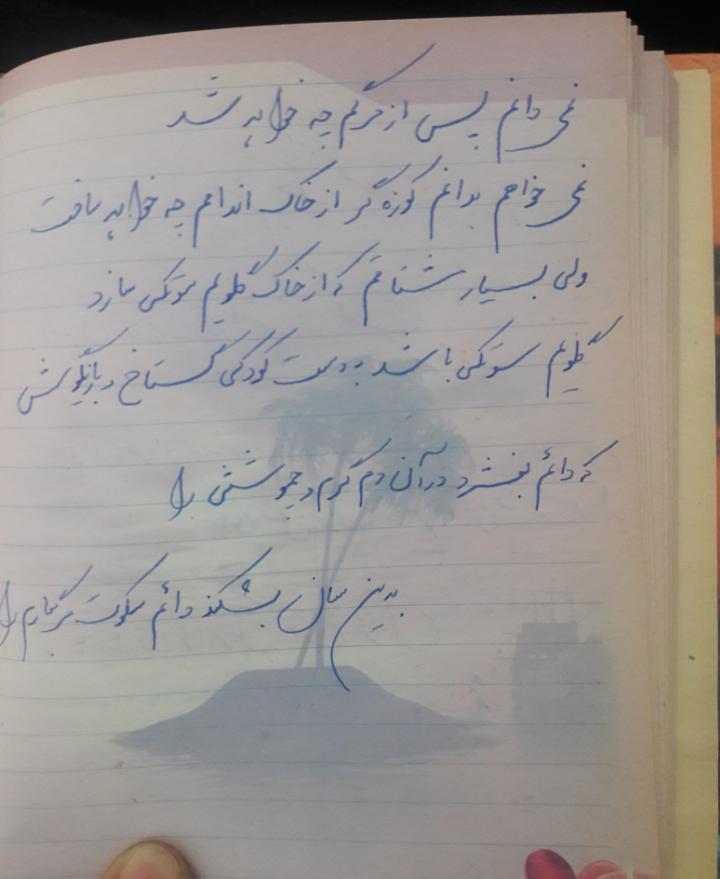 نمی دانم پس از مرگم چه خواهد شد
نمی خواهم بدانم کوزه گر از خاک اندامم چه خواهد ساخت
ولی بسیار مشتاقم که از خاک گلویم سوتکی سازد
گلویم سوتکی باشد بدست کودکی گستاخ و بازیگوش
که دائم بفشرد در آن دم گرم و چموشش را
بدین سان بشکند دائم سکوت مرگبارم را